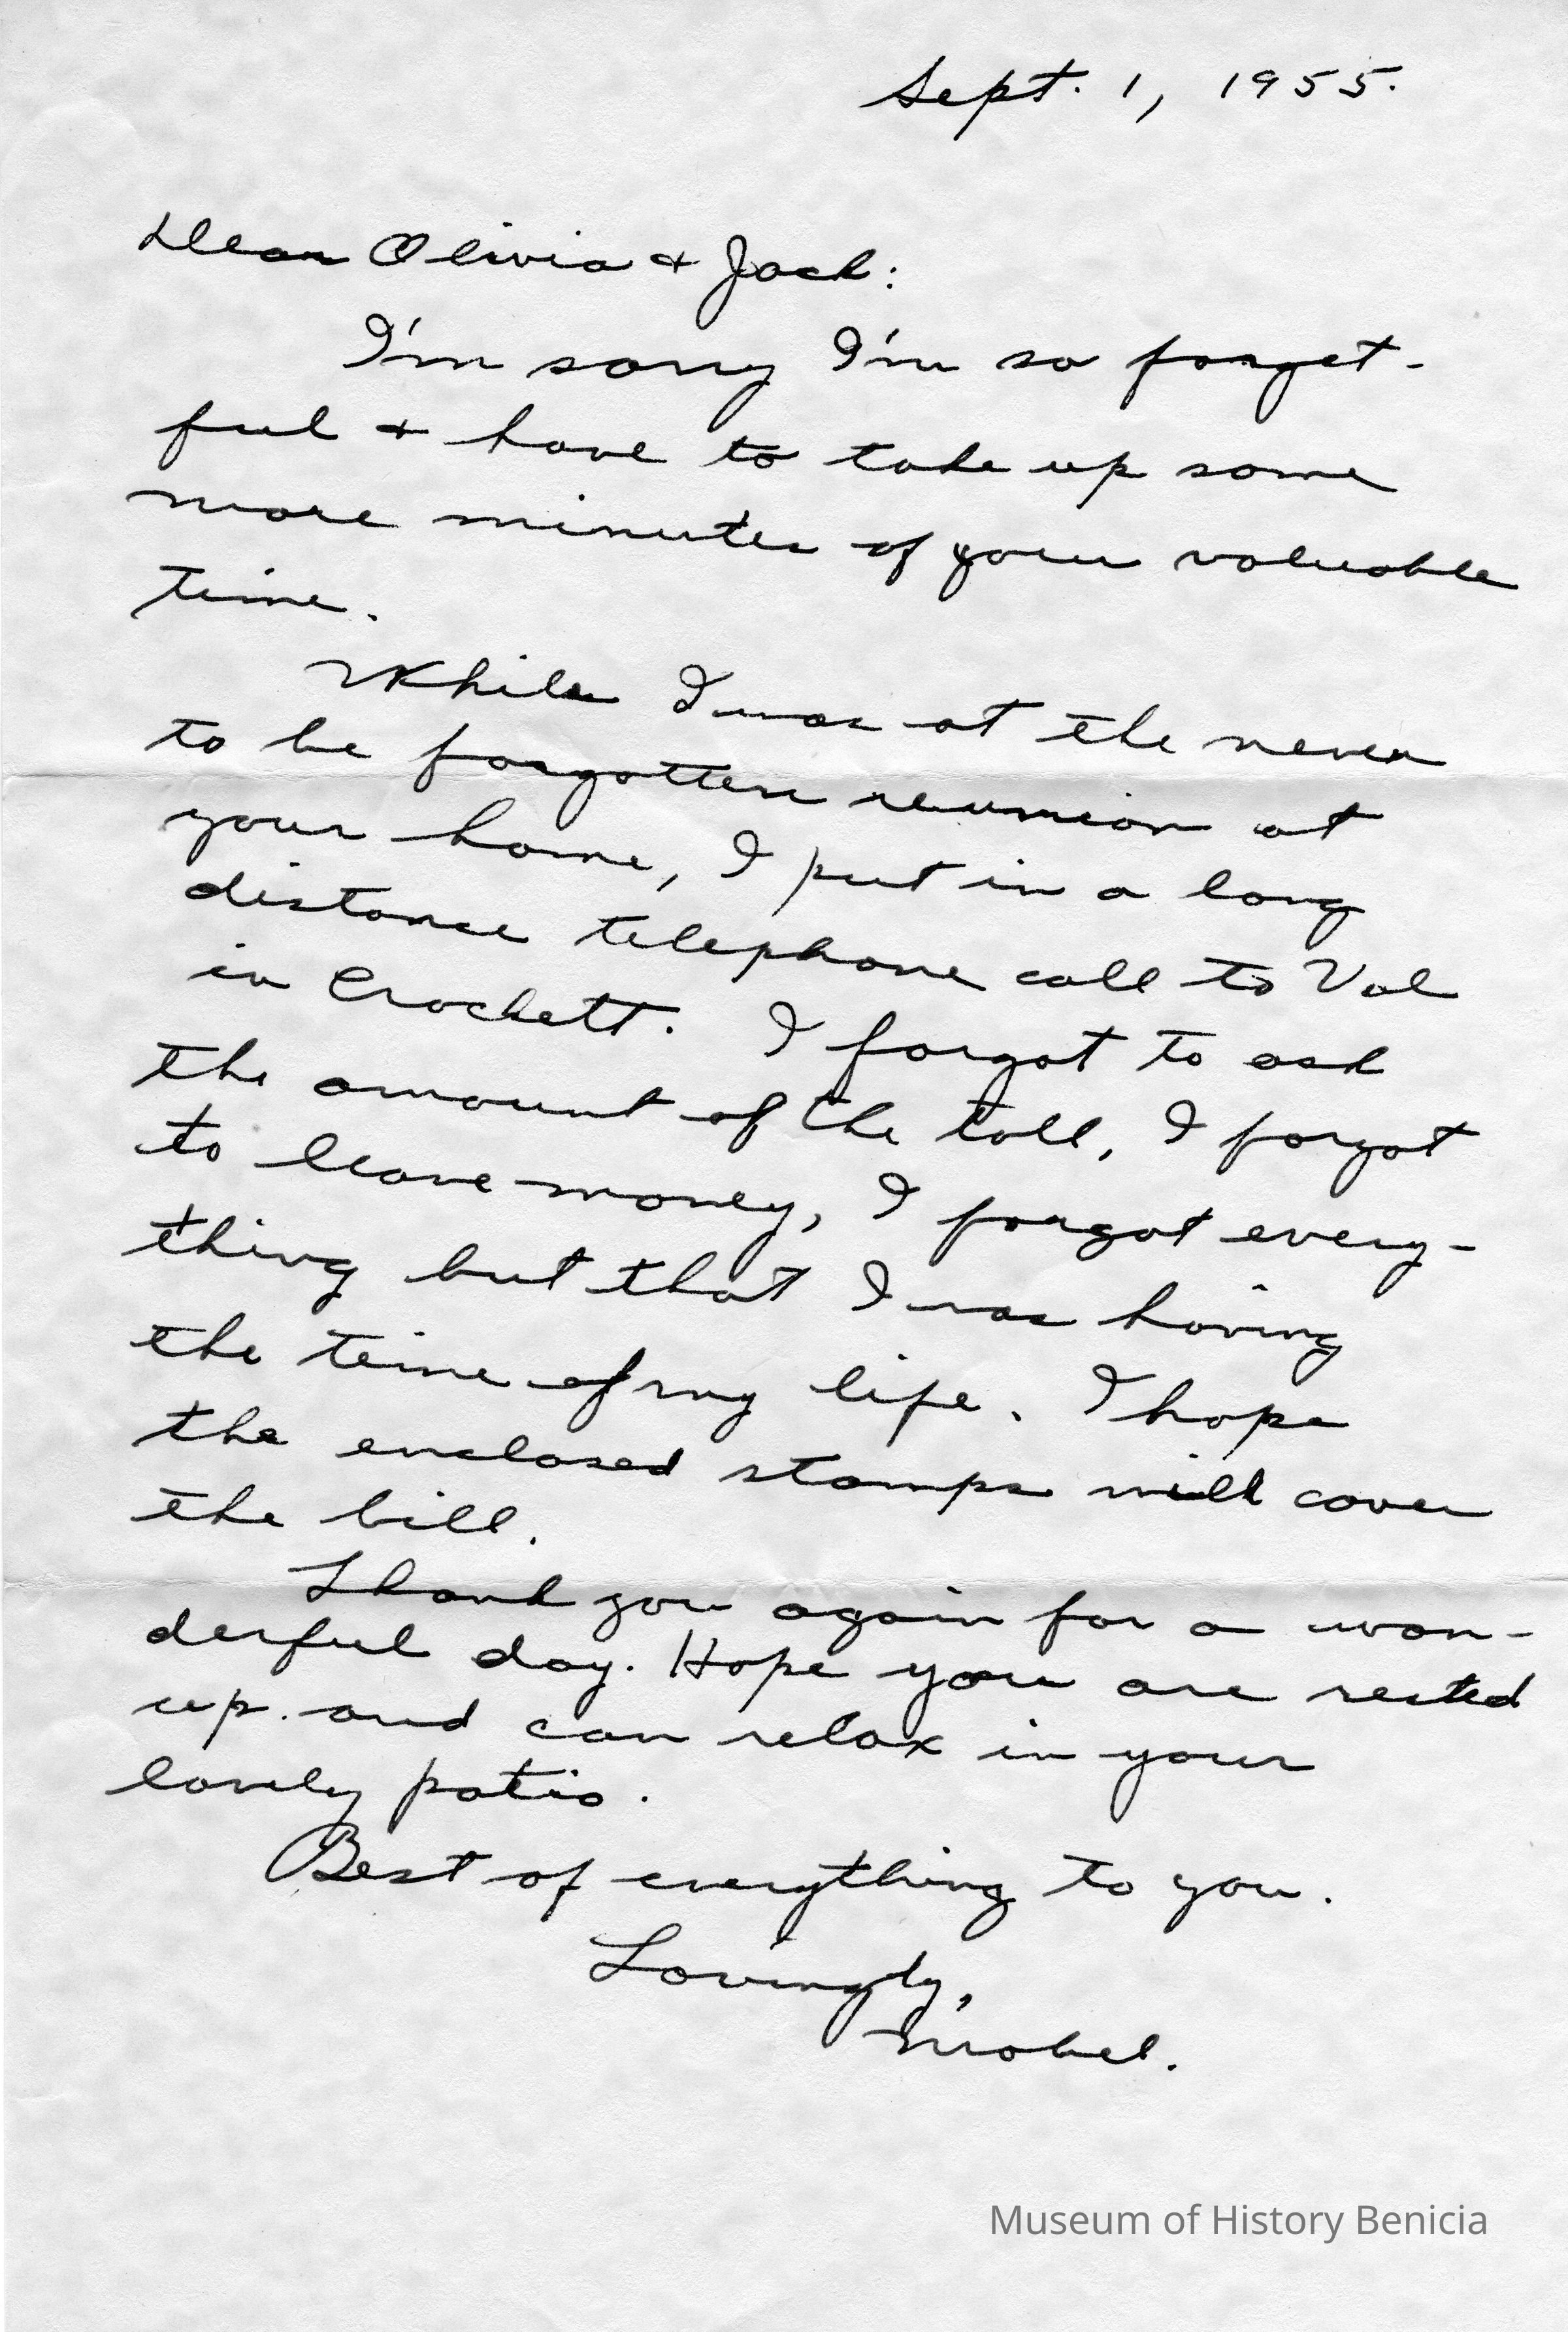 Sept. 1, 1955.
Dear Olivia & Jack:
I'm sorry I'm so forget-
ful & have to take up some
more minutes of your valuable
time.
While I was at the never
to be forgotten reunion at
your home, I put in a long
distance telephone call to Val
in Crockett. I forgot to ask
the amount of the toll, I forgot
to leave money, I forgot every-
thing but that I was having
the time of my life. I hope
the enclosed stamps will cover
the bill.
Thank you again for a won-
derful day. Hope you are rested
up. and can relax in your
lovely patio.
Best of everything to you.
Lovingly,
Mabel.
Museum of History Benicia